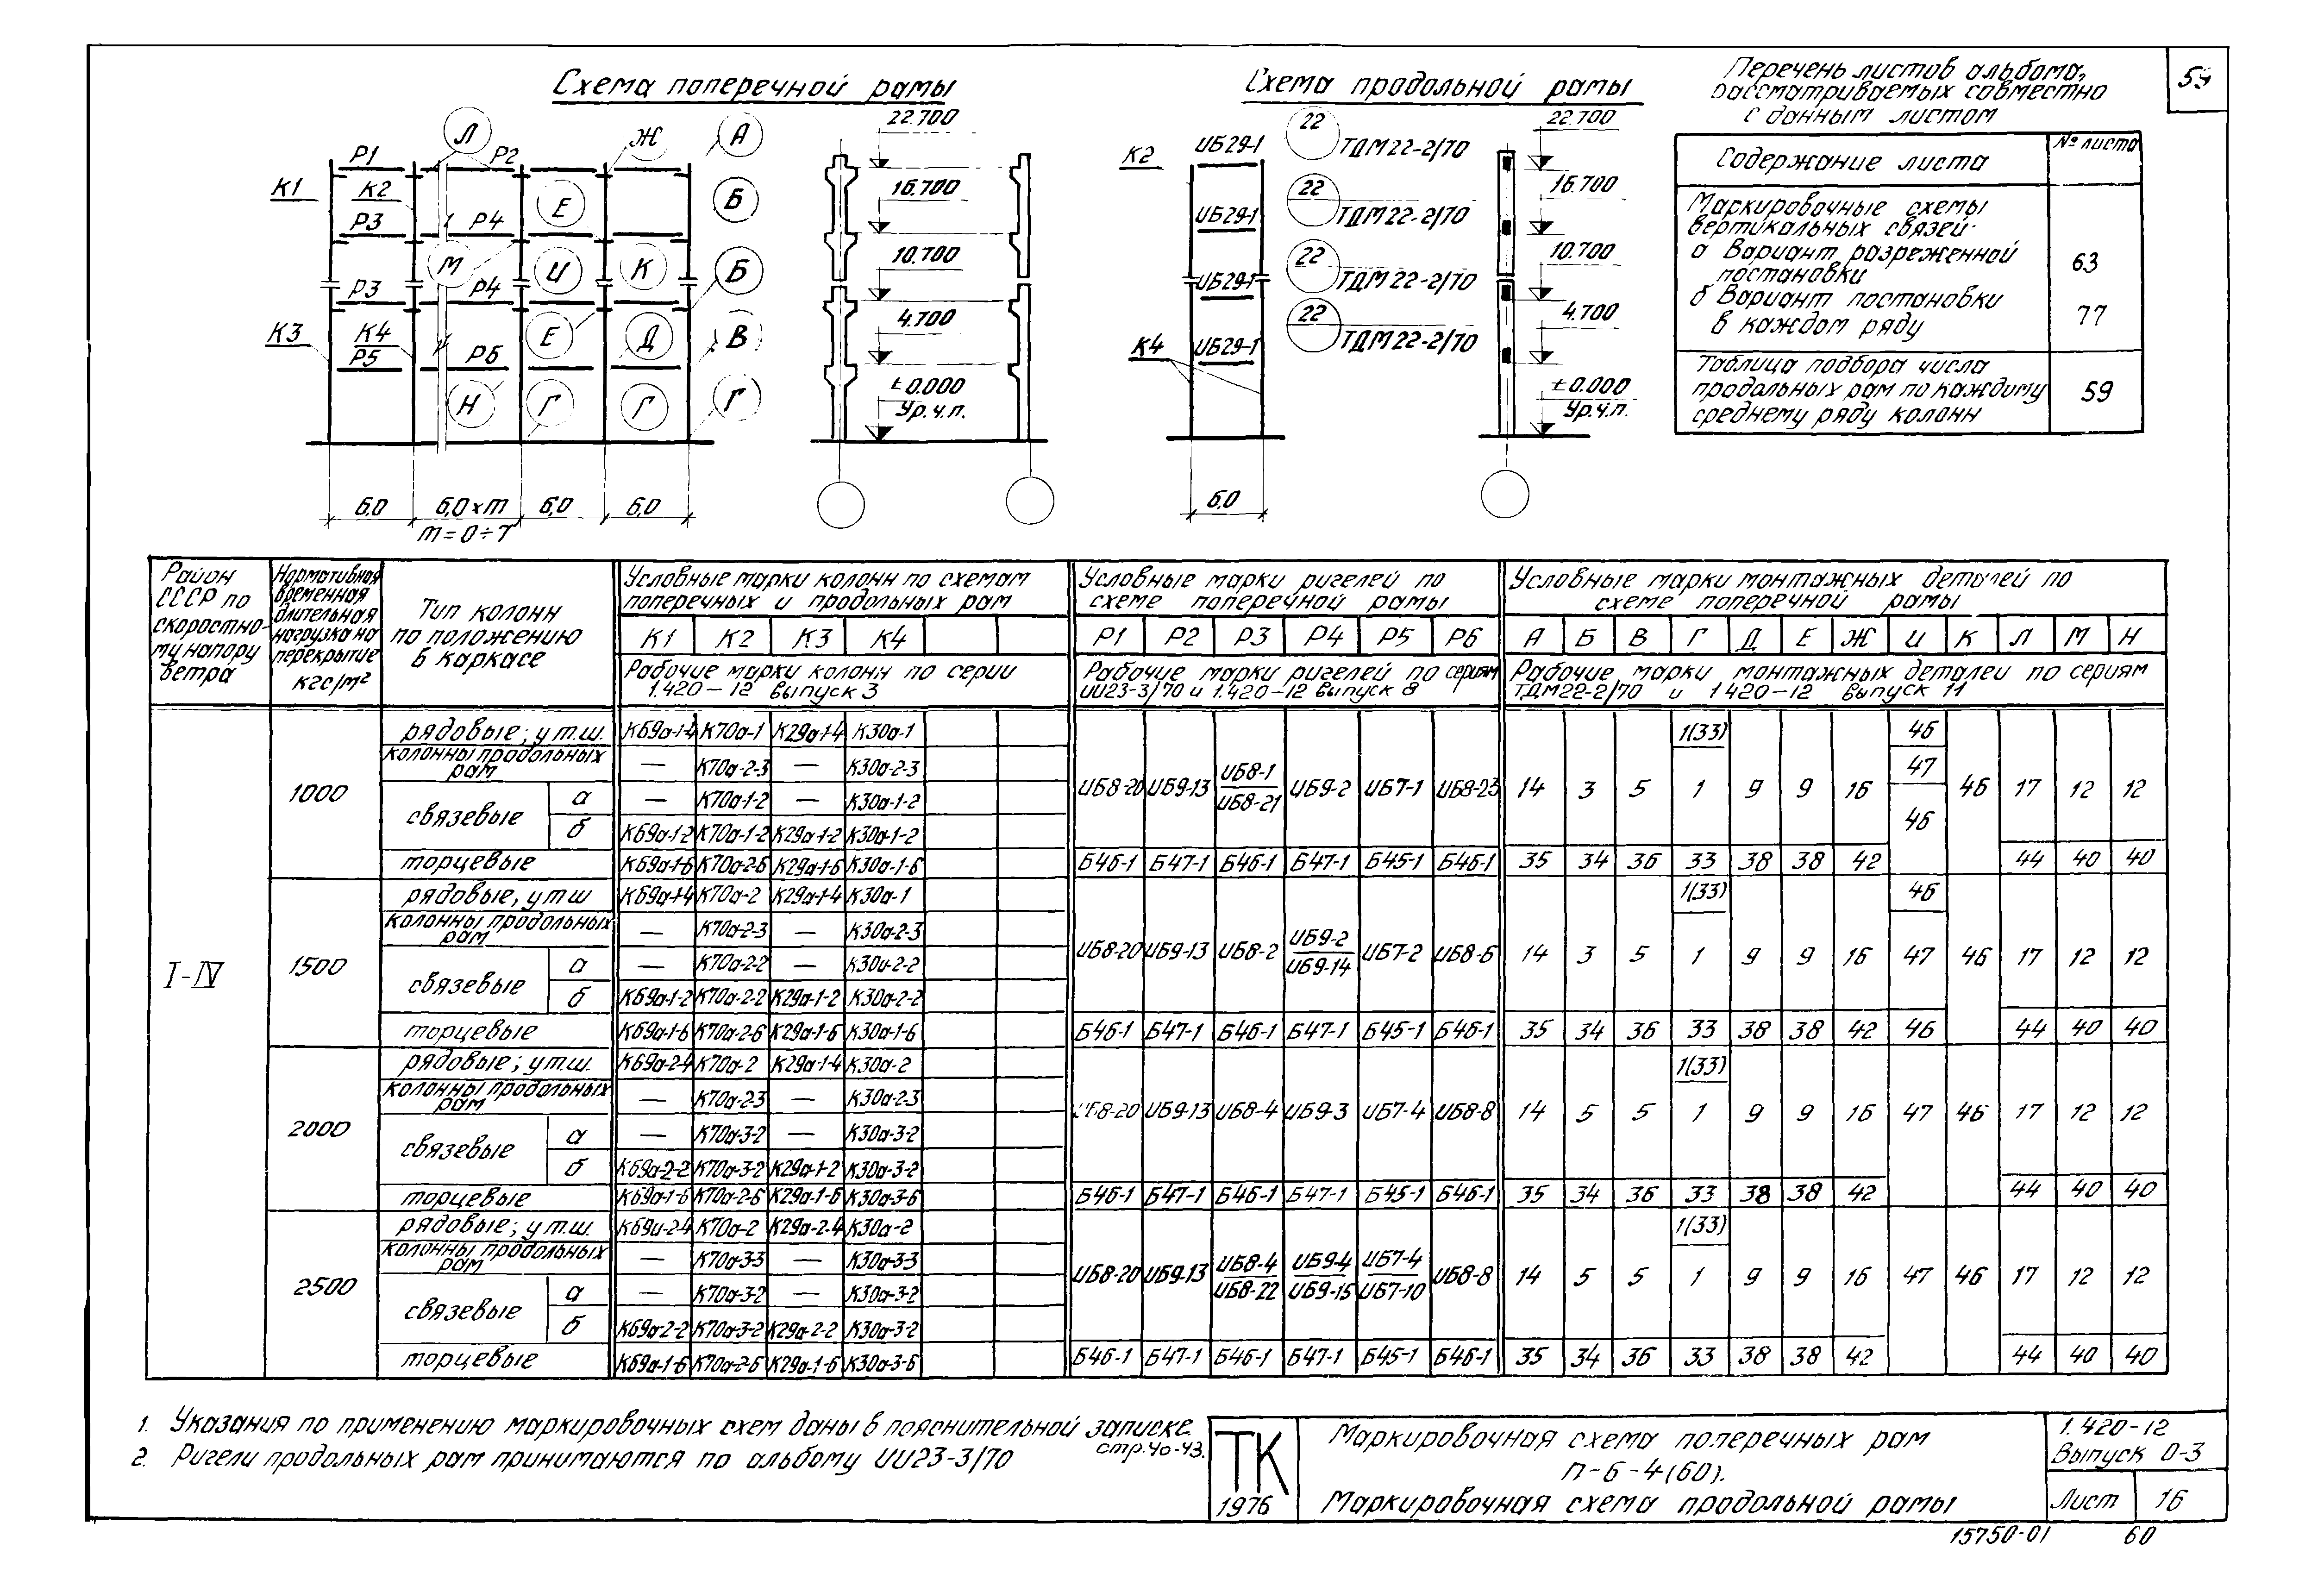 59
Схема поперечной рамы
22.700
16.700
10.700
4.700
±0.000
Ур.ч.п.
Р1 Л Р2 Ж А
К1 К2 Е Б
Р3 Р4
М И К Б
Р3 Р4
К3 К4 Е Д В
Р5 Р6
Н Г Г Г
6,0 6,0×m 6,0 6,0
m=0÷7
Схема продольной рамы
К2 ИБ29-1 22 ТДМ22-2/70 22.700
ИБ29-1 22 ТДМ22-2/70 16.700
ИБ29-1 22 ТДМ22-2/70 10.700
К4 ИБ29-1 22 ТДМ22-2/70 4.700
±0.000
Ур.ч.п.
6,0
Перечень листов альбома,
рассматриваемых совместно
с данным листом
Содержание листа № листа
Маркировочные схемы
вертикальных связей:
а Вариант разреженной
постановки 63
б Вариант постановки
в каждом ряду 77
Таблица подбора числа
продольных рам по каждому
среднему ряду колонн 59
Район СССР по скоростному напору ветра
Нормативная временная длительная нагрузка на перекрытие кгс/м²
Тип колонн по положению в каркасе
Условные марки колонн по схемам поперечных и продольных рам
К1 К2 К3 К4
Рабочие марки колонн по серии 1.420-12 выпуск 3
Условные марки ригелей по схеме поперечной рамы
Р1 Р2 Р3 Р4 Р5 Р6
Рабочие марки ригелей по сериям ИИ23-3/70 и 1.420-12 выпуск 8
Условные марки монтажных деталей по схеме поперечной рамы
А Б В Г Д Е Ж И К Л М Н
Рабочие марки монтажных деталей по сериям ТДМ22-2/70 и 1.420-12 выпуск 11
I-IV
1000
рядовые; у т.ш. К69а-1-4 К70а-1 К29а-1-4 К30а-1 1(33) 46
колонны продольных рам — К70а-2-3 — К30а-2-3 47
ИБ8-20 ИБ9-13 ИБ8-1 ИБ8-21 ИБ9-2 ИБ7-1 ИБ8-23 14 3 5 1 9 9 16 46 46 17 12 12
связевые а — К70а-1-2 — К30а-1-2
б К69а-1-2 К70а-1-2 К29а-1-2 К30а-1-2
торцевые К69а-1-6 К70а-2-6 К29а-1-6 К30а-1-6 Б46-1 Б47-1 Б46-1 Б47-1 Б45-1 Б46-1 35 34 36 33 38 38 42 44 40 40
1500
рядовые, у т.ш К69а-1-4 К70а-2 К29а-1-4 К30а-1 1(33) 46
колонны продольных рам — К70а-2-3 — К30а-2-3
ИБ8-20 ИБ9-13 ИБ8-2 ИБ9-2 ИБ9-14 ИБ7-2 ИБ8-6 14 3 5 1 9 9 16 47 46 17 12 12
связевые а — К70а-2-2 — К30а-2-2
б К69а-1-2 К70а-2-2 К29а-1-2 К30а-2-2
торцевые К69а-1-6 К70а-2-6 К29а-1-6 К30а-1-6 Б46-1 Б47-1 Б46-1 Б47-1 Б45-1 Б46-1 35 34 36 33 38 38 42 46 44 40 40
2000
рядовые; у т.ш. К69а-2-4 К70а-2 К29а-1-4 К30а-2 1(33)
колонны продольных рам — К70а-2-3 — К30а-2-3
ИБ8-20 ИБ9-13 ИБ8-4 ИБ9-3 ИБ7-4 ИБ8-8 14 5 5 1 9 9 16 47 46 17 12 12
связевые а — К70а-3-2 — К30а-3-2
б К69а-2-2 К70а-3-2 К29а-1-2 К30а-3-2
торцевые К69а-1-6 К70а-2-6 К29а-1-6 К30а-3-6 Б46-1 Б47-1 Б46-1 Б47-1 Б45-1 Б46-1 35 34 36 33 38 38 42 44 40 40
2500
рядовые; у т.ш. К69а-2-4 К70а-2 К29а-2-4 К30а-2 1(33)
колонны продольных рам — К70а-3-3 — К30а-3-3
ИБ8-20 ИБ9-13 ИБ8-4 ИБ8-22 ИБ9-4 ИБ9-15 ИБ7-4 ИБ7-10 ИБ8-8 14 5 5 1 9 9 16 47 46 17 12 12
связевые а — К70а-3-2 — К30а-3-2
б К69а-2-2 К70а-3-2 К29а-2-2 К30а-3-2
торцевые К69а-1-6 К70а-2-6 К29а-1-6 К30а-3-6 Б46-1 Б47-1 Б46-1 Б47-1 Б45-1 Б46-1 35 34 36 33 38 38 42 44 40 40
1. Указания по применению маркировочных схем даны в пояснительной записке.
стр.40-43.
2. Ригели продольных рам принимаются по альбому ИИ23-3/70
ТК
1976
Маркировочная схема поперечных рам
П-6-4(60).
Маркировочная схема продольной рамы
1.420-12
Выпуск 0-3
Лист 16
15750-01 60